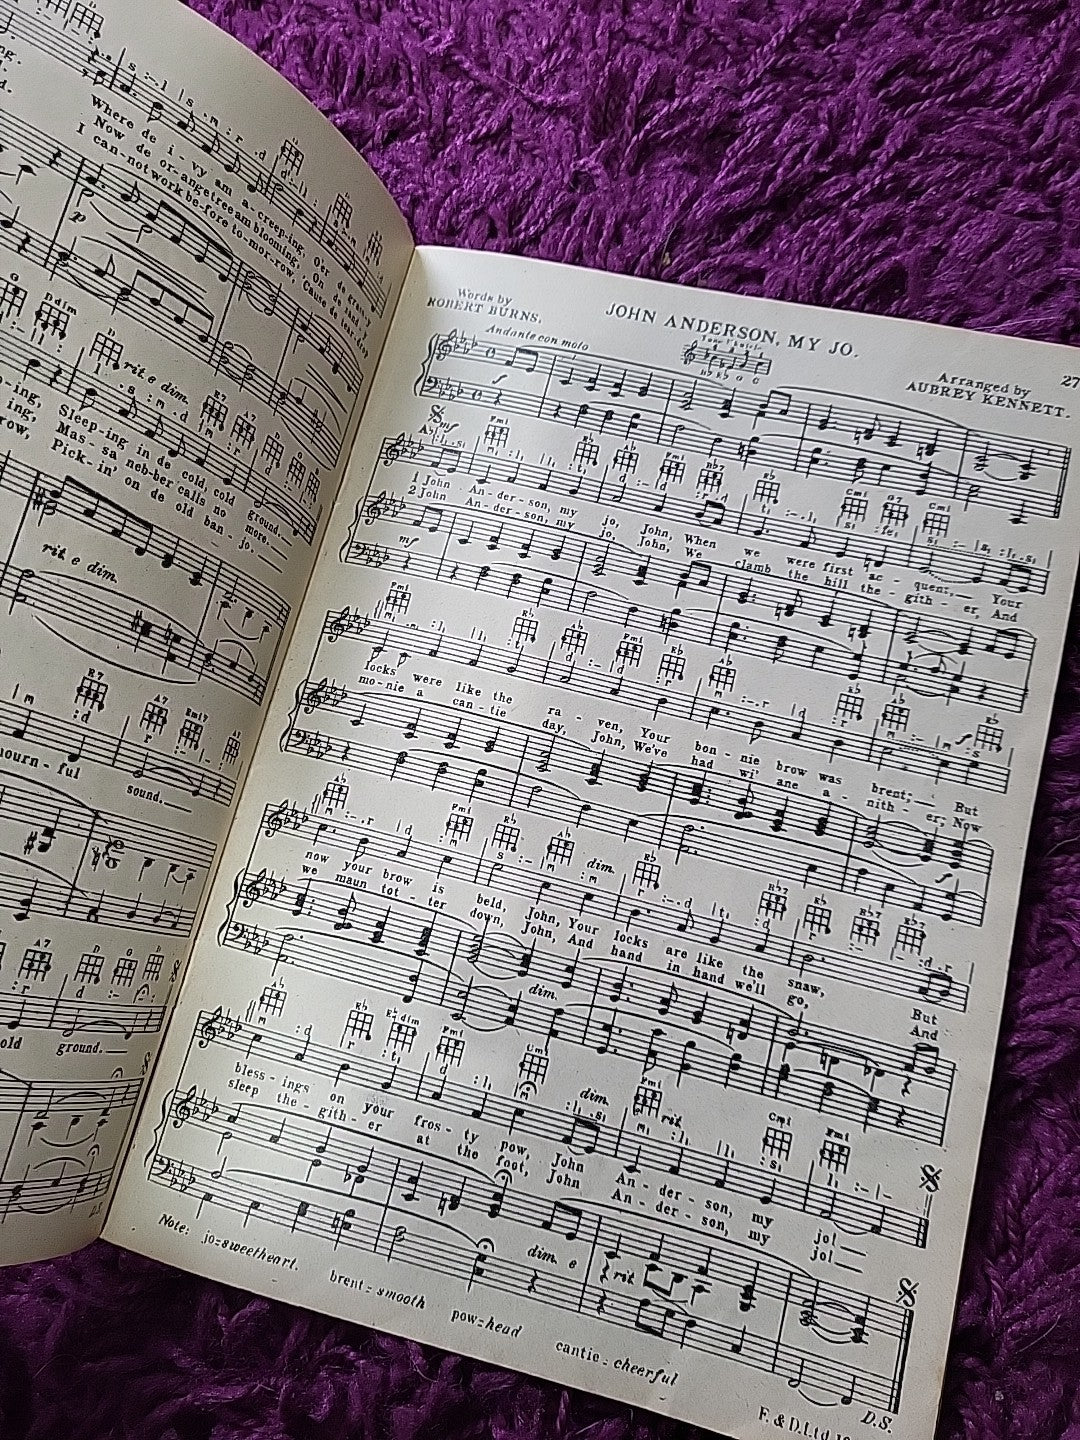 Where de i-vy am a-creep-ing, O'er de grass-y
Now de or-ange tree am blooming, On de sand-y
I can-not work be-fore to-mor-row, 'Cause de tear-drop
rit e dim.
Sleep-ing in de cold, cold ground.
Mas-sa neb-ber calls no more.
Pick-in' on de old ban-jo.
rit e dim.
mourn-ful sound.
old ground.
D.S.
27
JOHN ANDERSON, MY JO.
Words by
ROBERT BURNS.
Arranged by
AUBREY KENNETT.
Andante con moto
Tune Ukulele
1 John An-der-son, my jo, John, When we were first ac-quent, Your
2 John An-der-son, my jo, John, We clamb the hill the-gith-er, And
locks were like the ra-ven, Your bon-nie brow was brent; But
mo-nie a can-tie day, John, We've had wi' ane a-nith-er; Now
now your brow is beld, John, Your locks are like the snaw, But
we maun tot-ter down, John, And hand in hand we'll go, And
dim.
dim.
bless-ings on your fros-ty pow, John An-der-son, my jo!
sleep the-gith-er at the foot, John An-der-son, my jo!
dim. rit
dim. e rit
D.S.
Note: jo=sweetheart. brent=smooth pow=head cantie=cheerful
F. & D. Ltd